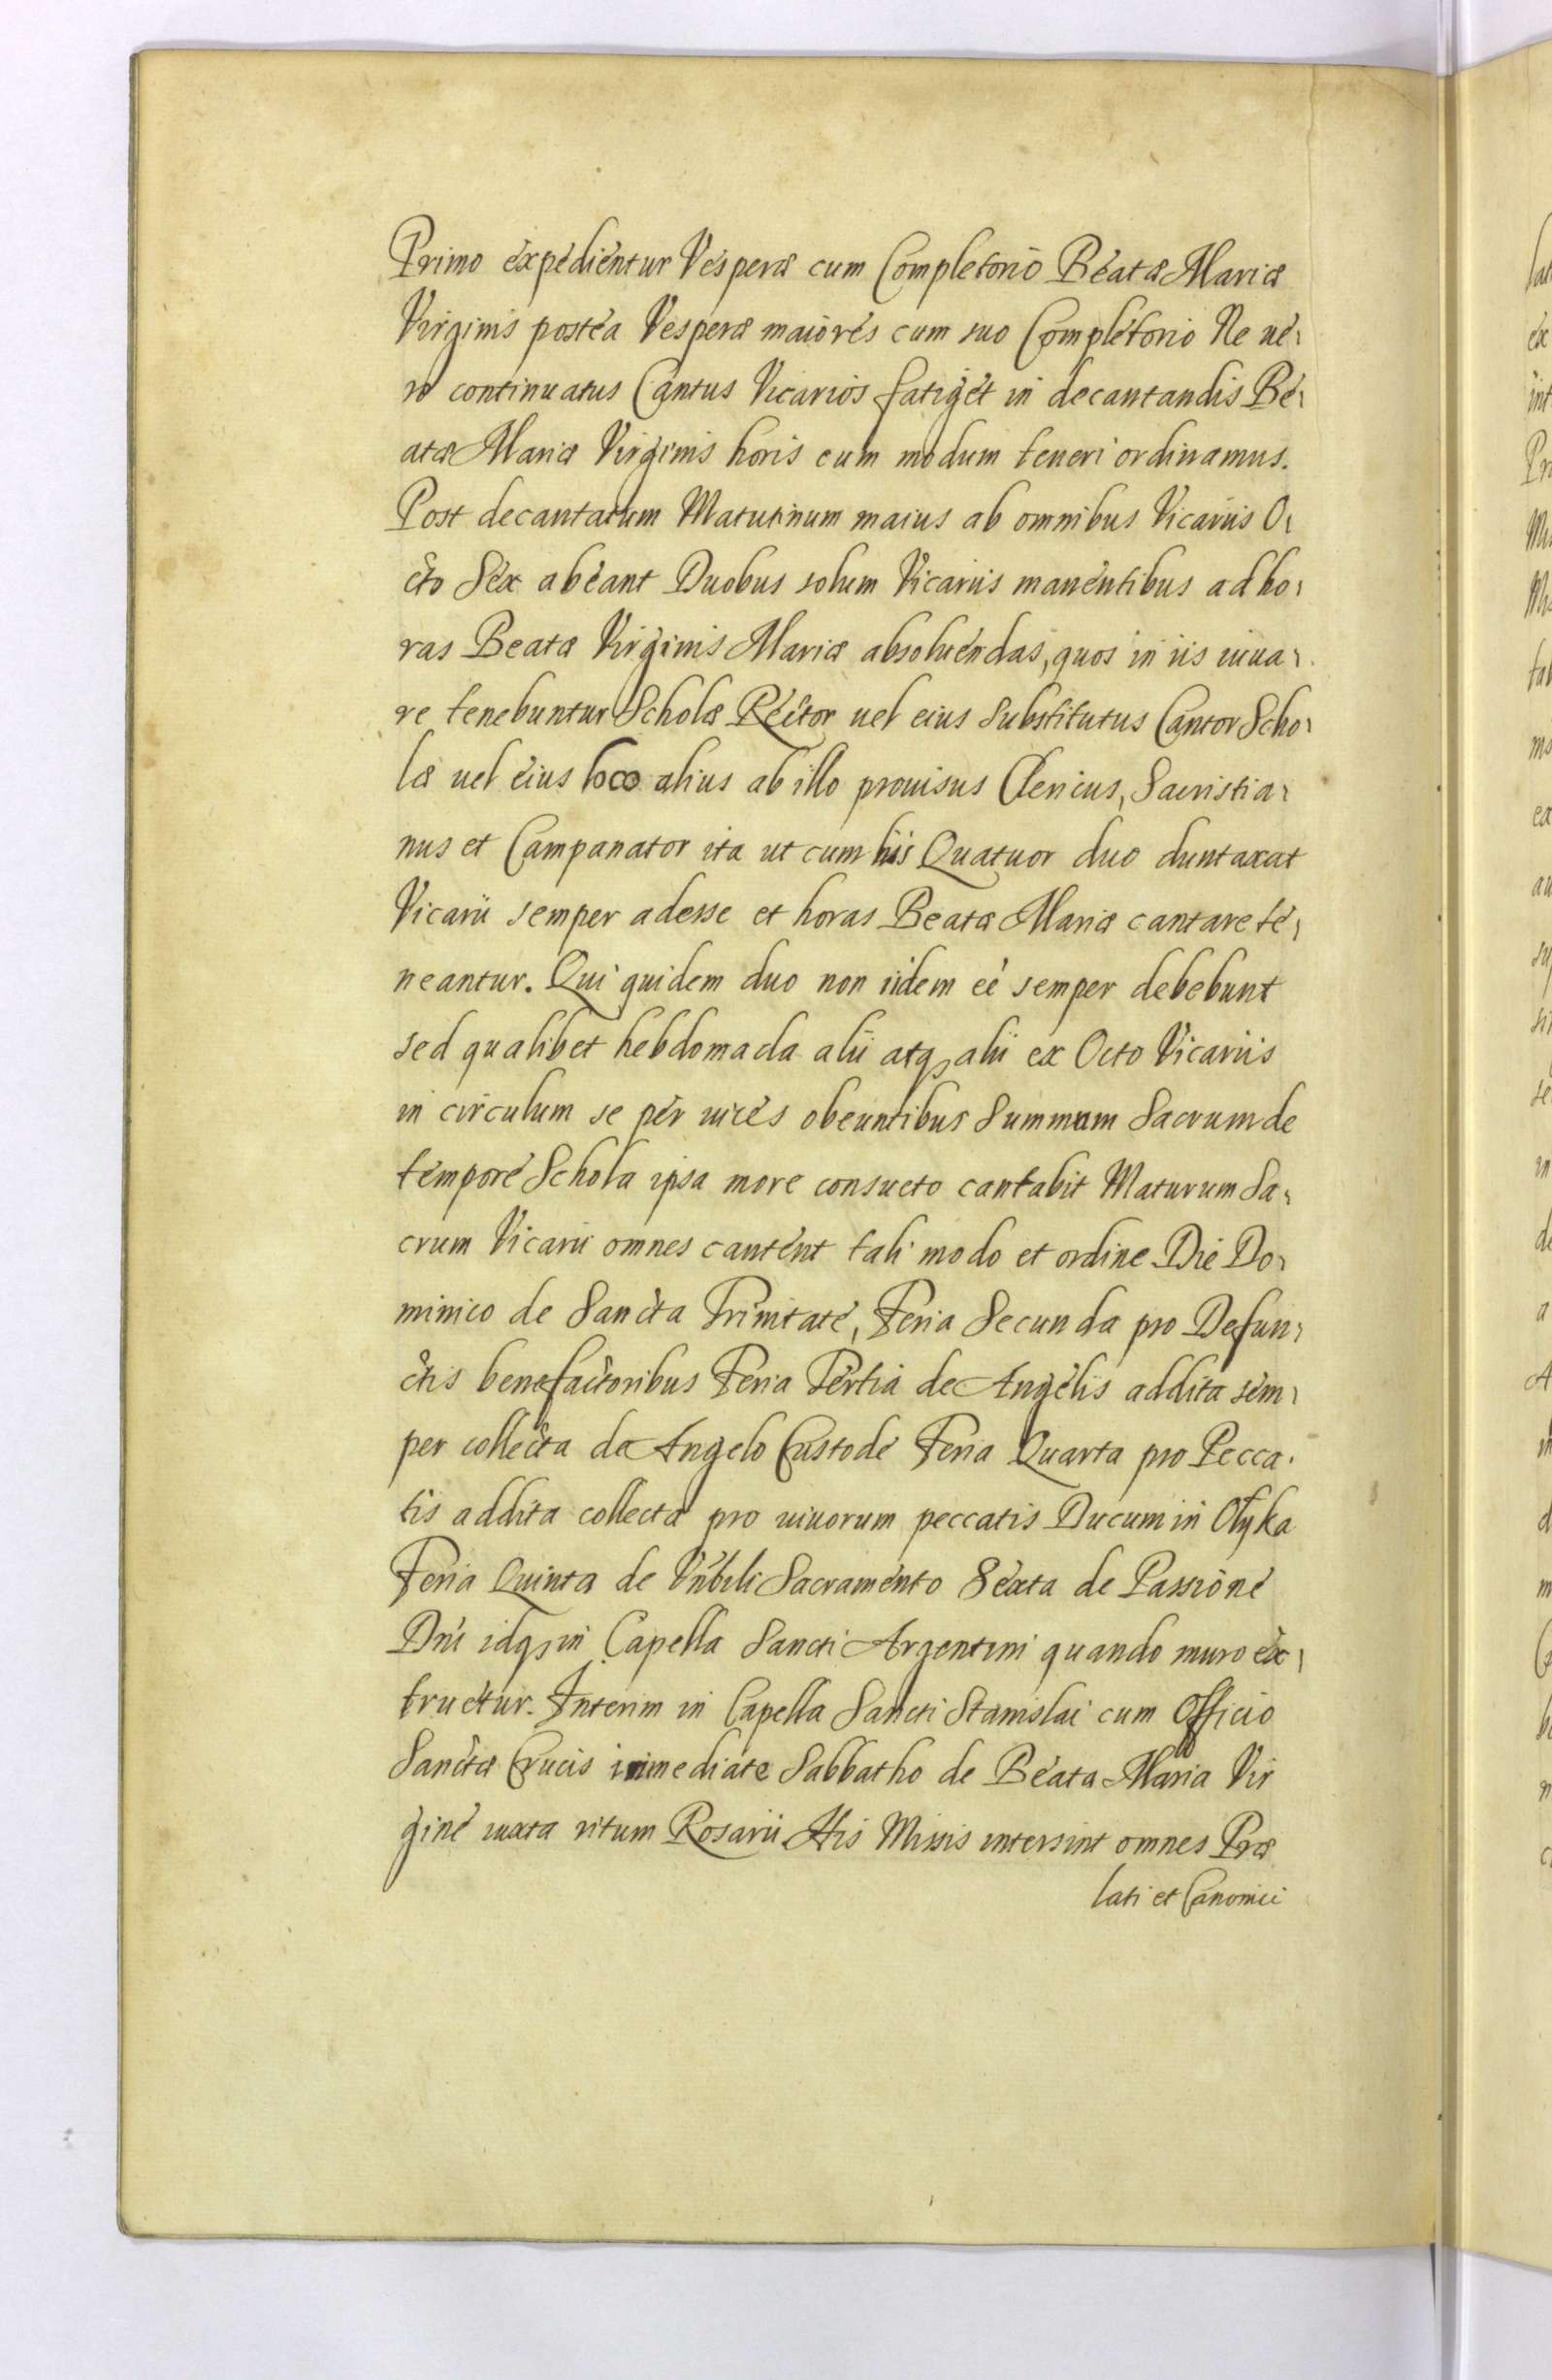 Primo expedientur Vesperæ cum Completorio Beatæ Mariæ
Virginis postea Vesperæ maiores cum suo Completorio Ne ue-
ro continuatus Cantus Vicarios fatiget in decantandis Be-
atæ Mariæ Virginis horis eum modum teneri ordinamus.
Post decantatum Matutinum maius ab omnibus Vicariis O-
cto Sex abeant Duobus solum Vicariis manentibus ad ho-
ras Beatæ Virginis Mariæ absoluendas, quos in iis iuua-
re tenebuntur Scholæ Rector uel eius Substitutus Cantor Scho-
læ uel eius loco alius ab illo prouisus Clericus, Sacristia-
nus et Campanator ita ut cum his Quatuor duo duntaxat
Vicarii semper adesse et horas Beatæ Mariæ cantare te-
neantur. Qui quidem duo non iidem eē semper debebunt
sed qualibet hebdomada alii atq3 alii ex Octo Vicariis
in circulum se per uices obeuntibus Summum Sacrum de
tempore Schola ipsa more consueto cantabit Maturum Sa-
crum Vicarii omnes cantent tali modo et ordine Die Do-
minico de Sancta Trinitate, Feria Secunda pro Defun-
ctis benefactoribus Feria Tertia de Angelis addita sem-
per collecta de Angelo Custode Feria Quarta pro Pecca-
tis addita collecta pro uiuorum peccatis Ducum in Olyka
Feria Quinta de Vñbili Sacramento Sexta de Passione
Dñi idq3 in Capella Sancti Argentini quando muro ex-
truetur. Interim in Capella Sancti Stanislai cum Officio
Sanctæ Crucis immediate Sabbatho de Beata Maria Vir
gine iuxta ritum Rosarii His Missis intersint omnes Præ
lati et Canonici